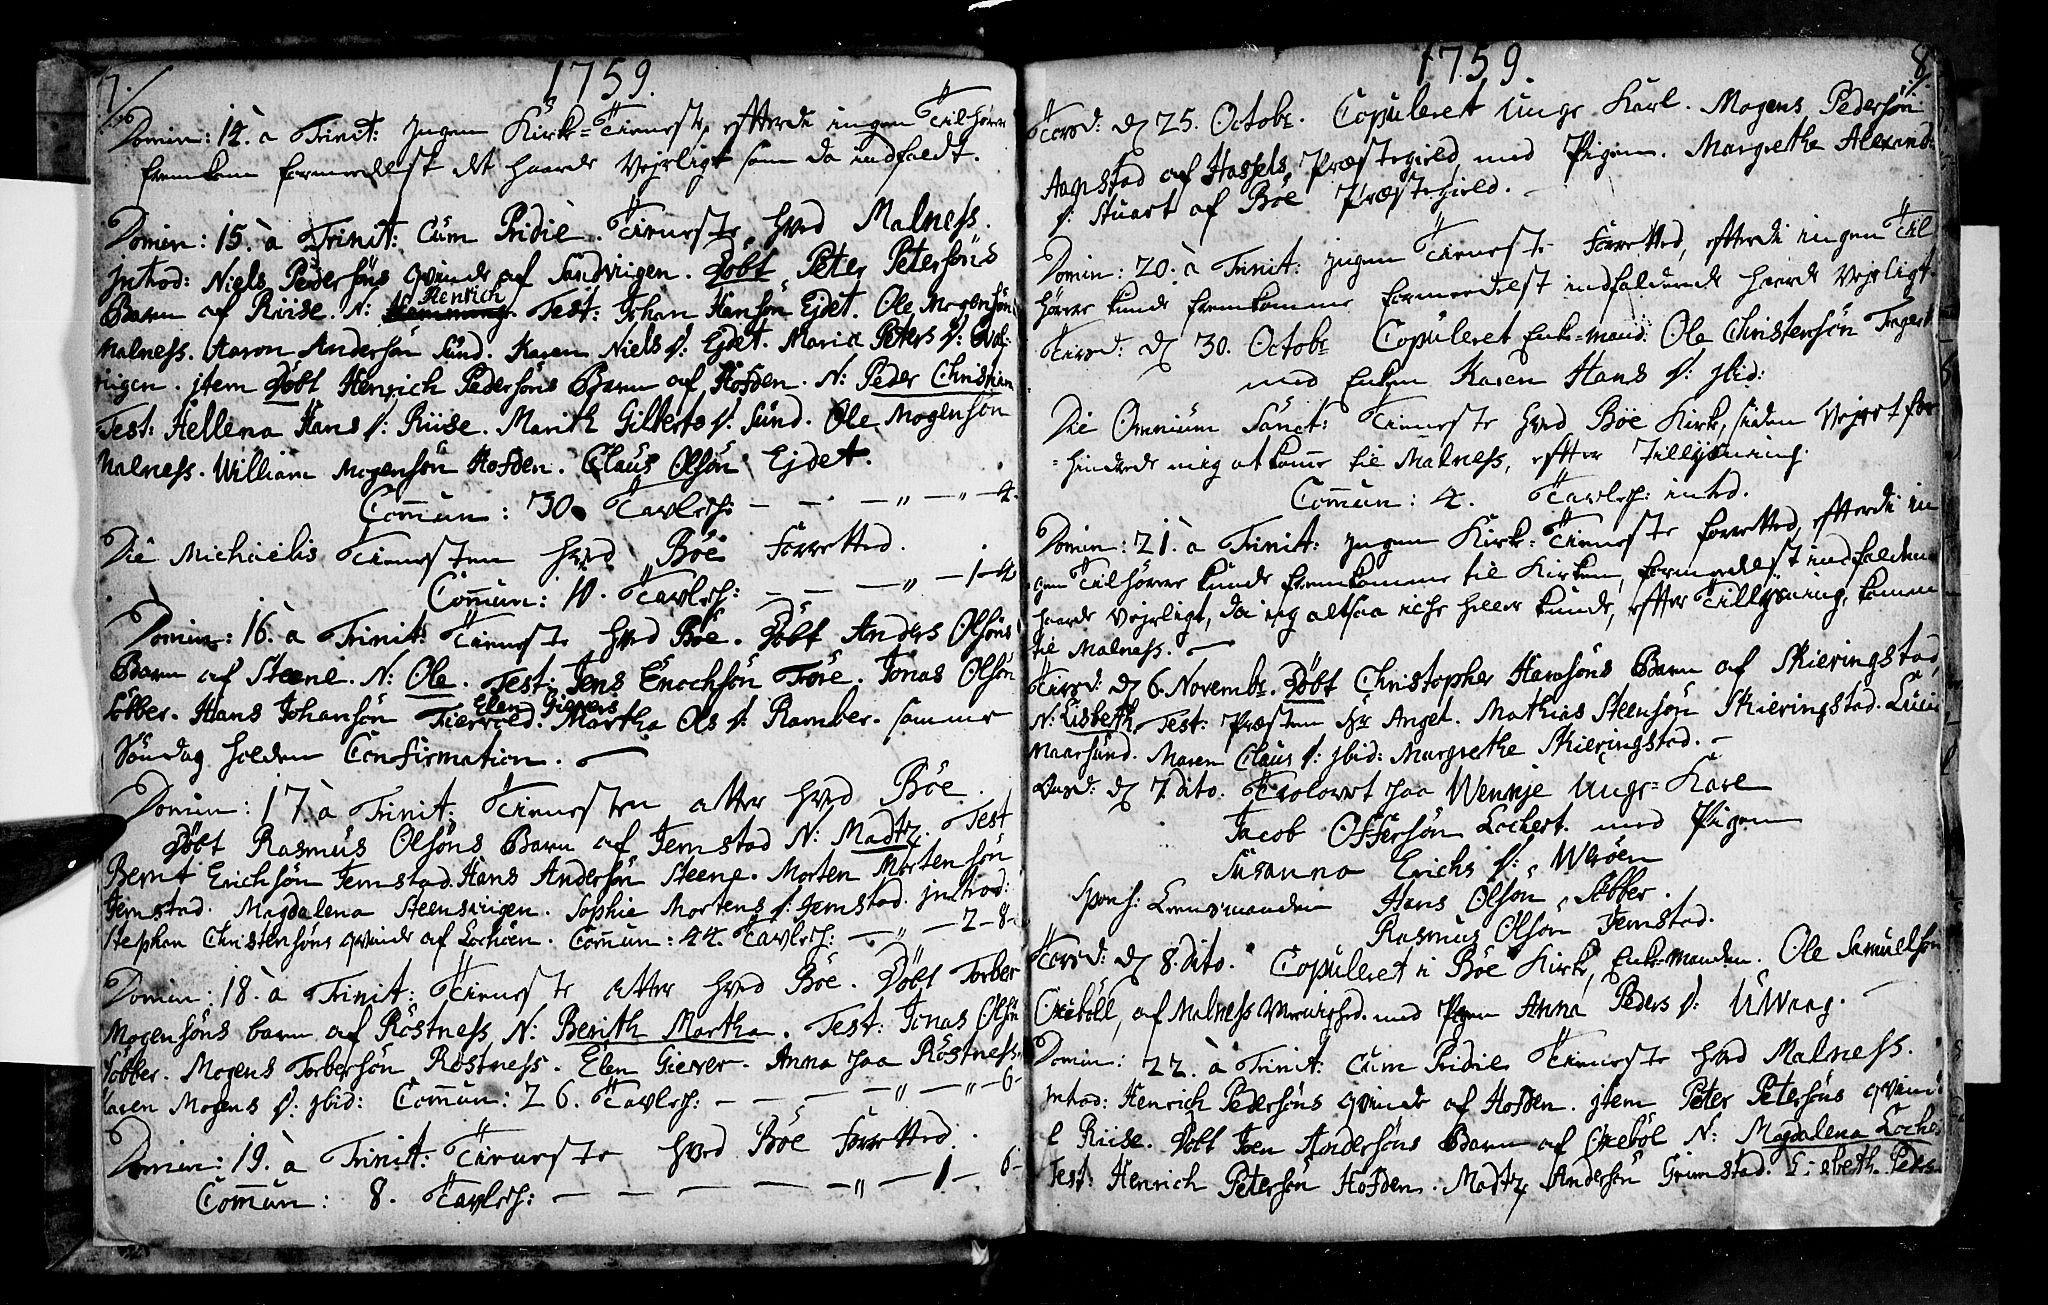 7./
1759.
Domin: 14. a Trinit: Ingen Kirke-Tieneste, efterdi ingen Tilhører
fremkom formedelst det haarde Vejrligt som da indfaldt.
Domin: 15. à Trinit: Cum Pridie. Tieneste hved Malness.
Introd: Niels Pedersöns qvinde af Sandviigen. Döbt Peter Petersöns
Barn af Riise. N: Henrich Test: Johan Hansön Ejdet. Ole Mogensön
Malness. Aaron Andersön Sund. Karen Niels D: Ejdet. Maria Peters D:
viigen. jtem Döbt Henrich Pedersöns Barn af Hofden. N: Peder Christian
Test: Hellena Hans D: Riise. Marith Gilberts D: Sund. Ole Mogensön
Malness. William Mogensön Hofden. Claus Olsön Ejdet.
Com̄un: 30. Tavlech: — — — „ — „ — 4.
Die Michaëlis Tienesten hved Böe Forretted.
Com̄un: 10. Tavlech: — — — „ — 1 - 4
Domin: 16. a Trinit: Tieneste hved Böe. Döbt Anders Olsöns
Barn af Steene. N: Ole. Test: Jens Enochsön Tröe. Jonas Olsön
Söbber. Hans Johansön Elen Gievers Martha Ols D: Ramber. samme
Söndag holden Confirmation. —
Domin: 17. à Trinit: Tienesten atter hved Böe.
Döbt Rasmus Olsöns Barn af Jernstad N: Madtz. Test
Bernt Erichsön Jernstad. Hans Andersön Steene. Morten Mortensön
Jernstad. Magdalena Steensviigen. Sophie Mortens D: Jernstad. jntrod:
Stephan Christensöns qvinde af Lochöen. Com̄un: 44. Tavlech: — „ — 2 - 8 -
Domin: 18. à Trinit: Tieneste atter hved Böe. Döbt Torber
Mogensöns barn af Röstness N: Berith Martha. Test: Jonas Olsön
Söbber. Mogens Torbersön Röstness. Elen Giever. Anna paa Röstness.
Karen Mogens D: jbid: Com̄un: 26. Tavlech: — — — — „ — „ — 6 -
Domin: 19. à Trinit: Tieneste hved Böe Forretted.
Com̄un: 8. Tavlech: — — — — — „ — 1 - 6 -
1759.
8/.
Torsd: d 25. Octobr. Copuleret Unge Karl. Mogens Pedersön
af Hassels Præstegield, med Pigen. Margrethe Alexand:
D: Stuart af Böe Præstegield. —
Domin: 20. à Trinit: Ingen Tieneste Forretted, efterdi ingen Til
hörere kunde fremkomme formedelst indfaldende haarde Vejrligt.
Tirsd: d 30. Octobr Copuleret Enke-mand: Ole Christensön
med Enken Karen Hans D: jbid:
Die Omnium Sanct: Tieneste hved Böe Kirke, siden Vejret for
hindrede mig at kom̄e til Malness, efter Tillysning.
Com̄un: 4. Tavlech: inted.
Domin: 21. a Trinit: Ingen Kirke-Tieneste forretted, efterdi in
gen Tilhörere kunde fremkomme til Kirken, formedelst indfaldene
haarde Vejrligt, da jeg altsaa icke heller kunde, efter Tillysning, komme
til Malness. —
Tirsd: d 6. Novembr. Döbt Christopher Hansöns Barn af Skieringstad,
N: Lisbeth. Test: Præsten Hr Angel. Mathias Steensön Skieringstad. Lucia
Maarsund. Maren Claus D: jbid: Margrethe Skieringstad. —
Onsd: d 7. dito. Trolovet paa Wennje Unge-Karl
Jacob Offersön Lochert. med Pigen
Susanna Erichs D: Weröen
Spons: Lensmanden Hans Olson Söbber.
Rasmus Olsön Jernstad.
Torsd: d 8. dito. Copuleret i Böe Kirke, Enke-manden. Ole Samuelsön
Oxeböll, af Malness Menighed. med Pigen Anna Peders D: Uhvaag. —
Domin: 22. à Trinit: Cum Pridie Tieneste hved Malness.
Introd: Henrich Pedersöns qvinde af Hofden. jtem Peter Petersöns qvind
Riise. Döbt Joen Andersöns Barn af Oxeböl N: Magdalena
Test: Henrich Petersön Hofden. Madtz Andersön Grimstad. Elsbeth Peders